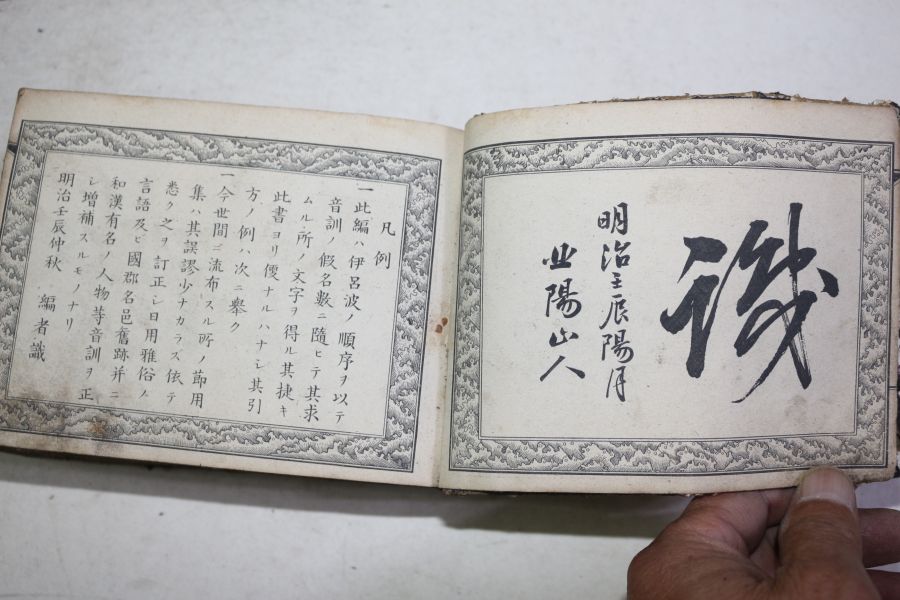 明治壬辰陽月
陽山人
凡例
一此編ハ伊呂波ノ順序ヲ以テ
音訓ノ假名數ニ隨ヒテ其求
ムル所ノ文字ヲ得ル其捷キ
此書ヨリ便ナルハナシ其引
方ノ例ハ次ニ擧ク
一今世間ニ流布スル所ノ節用
集ハ其誤謬少ナカラス依テ
悉ク之ヲ訂正シ日用雅俗ノ
言語及ヒ國郡名邑舊跡并ニ
和漢有名ノ人物等音訓ヲ正
シ増補スルモノナリ
明治壬辰仲秋 編者識